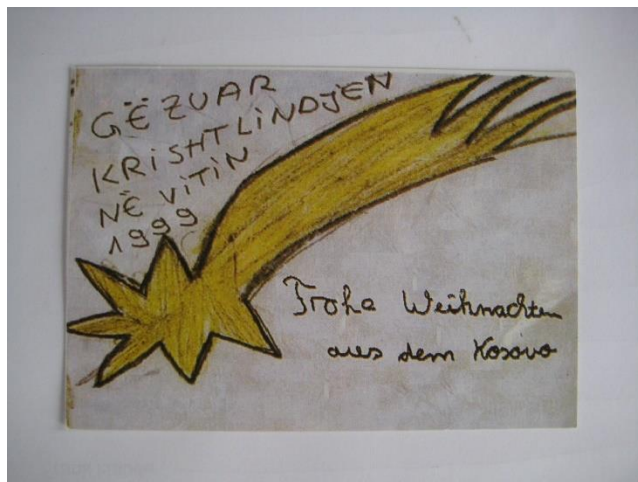 GËZUAR
KRiSHTLiNDJEN
NË ViTiN
1999
Frohe Weihnachten
aus dem Kosovo